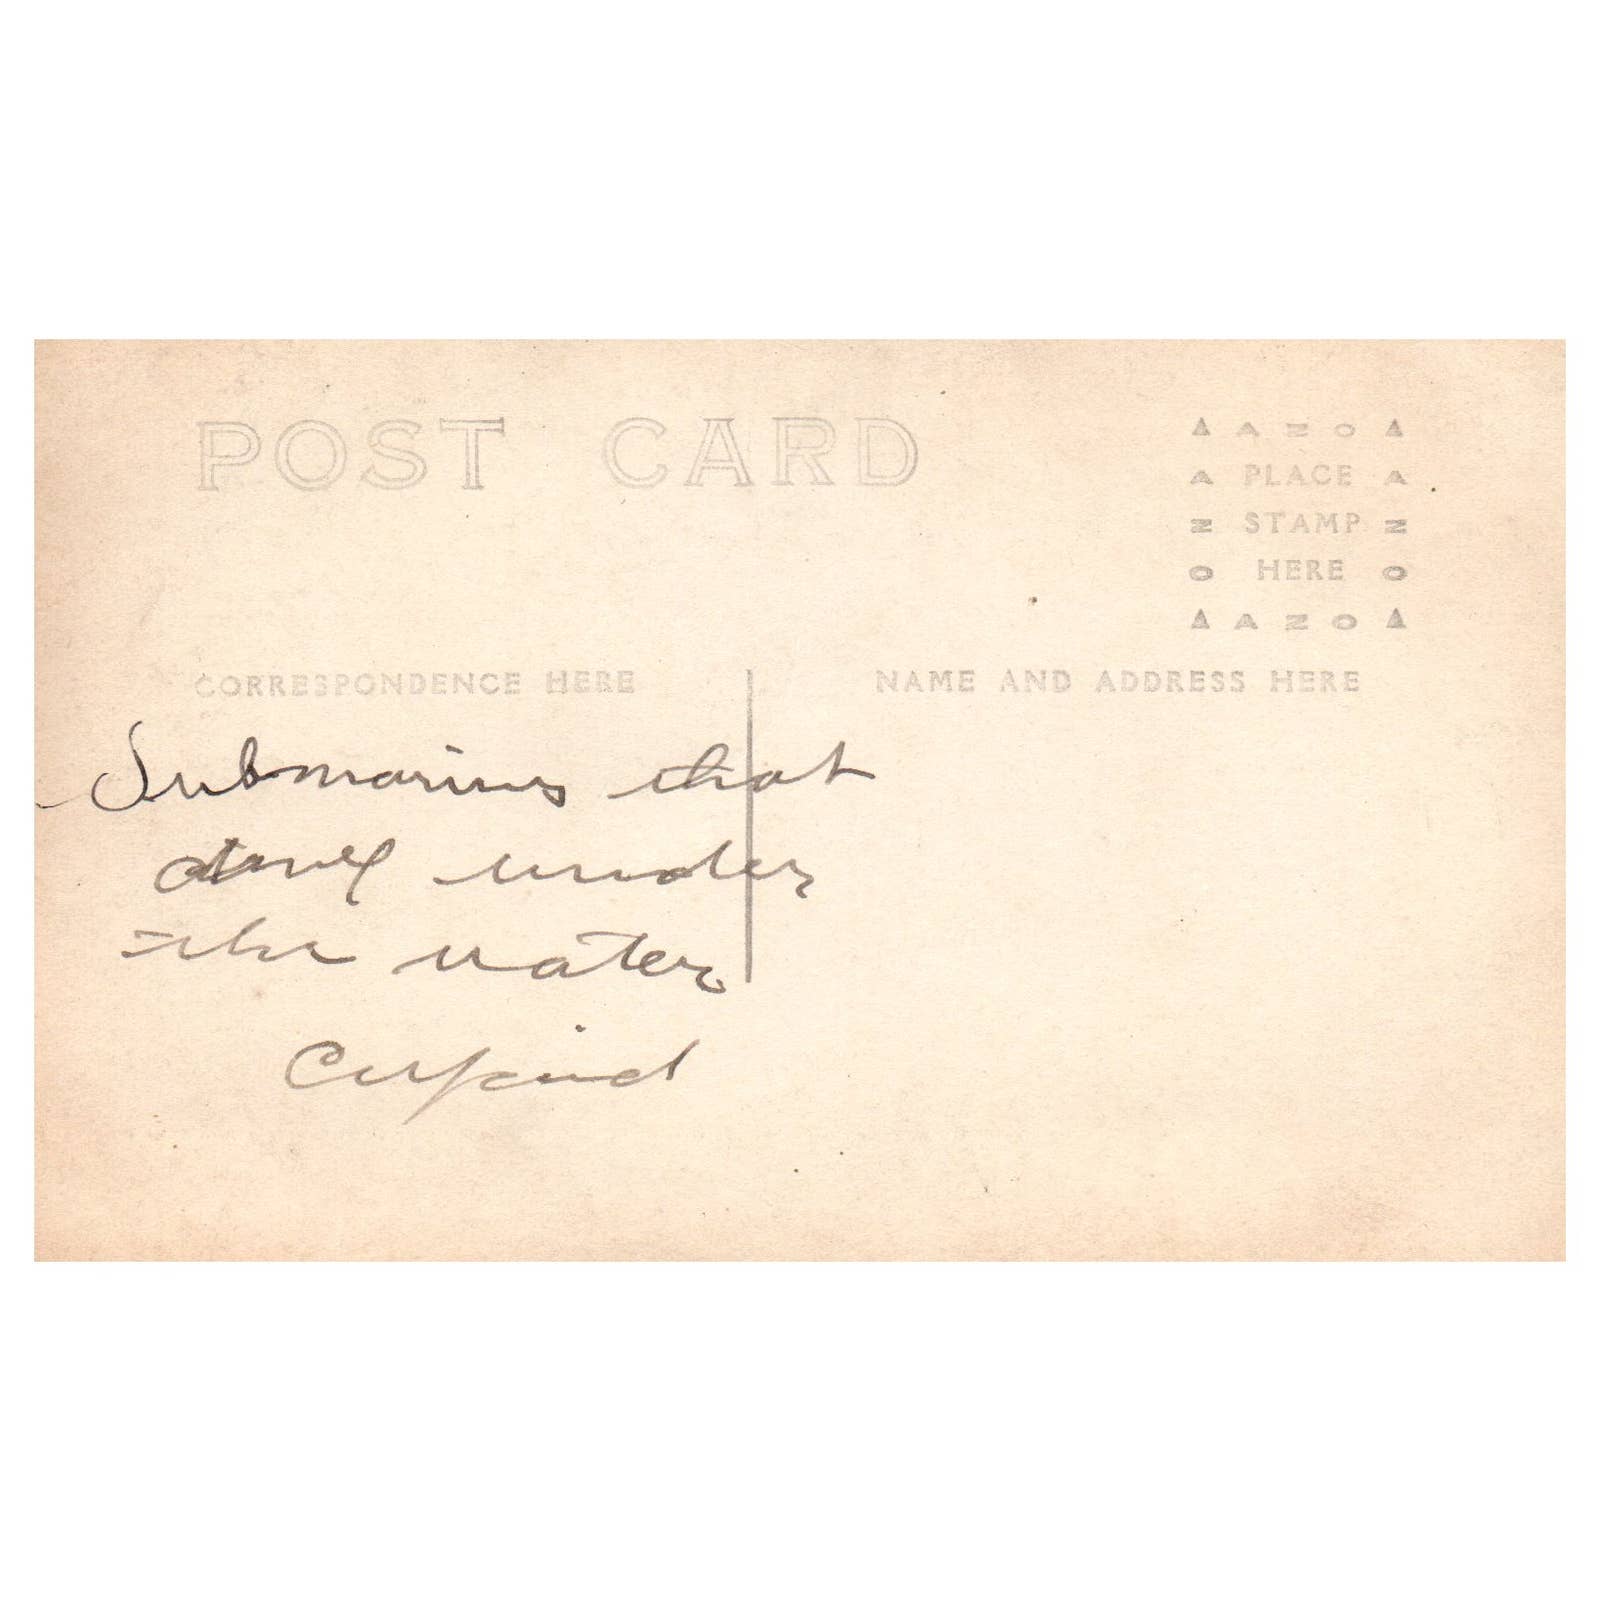 POST CARD
▲ A N O ▲
A PLACE A
N STAMP N
O HERE O
▲ A N O ▲
CORRESPONDENCE HERE
NAME AND ADDRESS HERE
Submarines that
under
the water